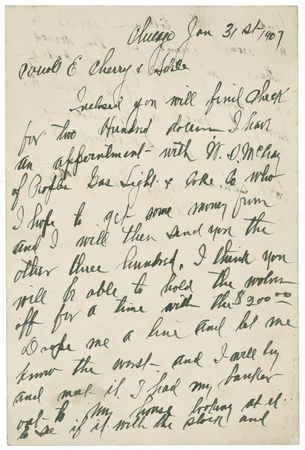 Chicago Jan 31st 1907
E Cherry &
Inclosed you will find Check
for two Hundred dolars, I have
an appointment with W. D. McKay
of Peoples Gas Light & Coke Co who
I hope to get some money from
and I will then send you the
other three hundred, I think you
will be able to hold the wolves
off for a time with the $200 00
Drope me a line and let me
know the worst and I will try
and meet it. I had my banker
out to my house looking at it
to see if it with the stock and